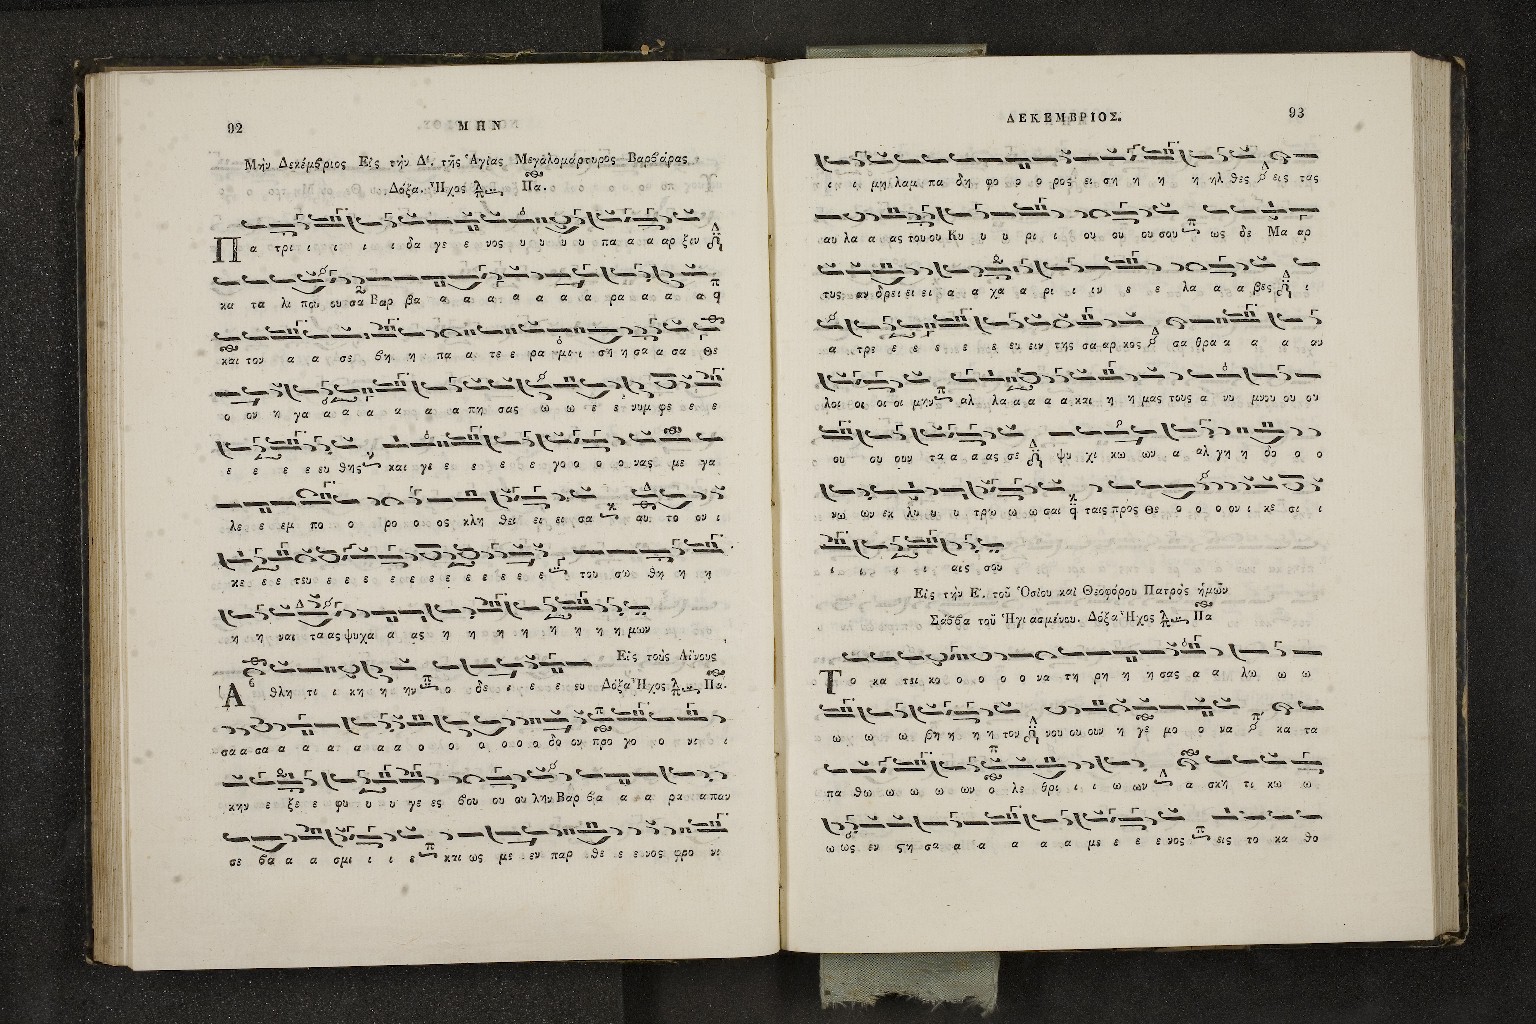 92
ΜΗΝ
Μὴν Δεκέμβριος Εἰς τὴν Δ'. τῆς Ἁγίας Μεγαλομάρτυρος Βαρβάρας
Δόξα. Ἦχος Πα.
Πα τρι ι ι ι ι δα γε ε νος υ υ υ υ πα α α αρ ξιν
κα τα λι που ου σα Βαρ βα α α α α α α α ρα α α α
και τον α α σε βη η πα α τε ε ρα μι ι ση η σα α σα Θε
ο ον η γα α α α α α α α πη σας ω ω ε ε νυμ φε ε ε
ε ε ε ε ευ θης και γε ε ε ε ε ε γο ο ο ο νας με γα
λε ε εμ πο ο ρο ο ος κλη θει ει ει σα αυ το ον ι
κε ε ε τευ ε ε ε ε ε ε ε ε ε ε ε ε του σω θη η η
η η ναι τα ας ψυχα α ας η η η η η η η η μων
Εἰς τοὺς Αἴνους
Α θλη τι ι κη η ην ο δε ε ε ε ευ Δόξα Ἦχος Πα.
σα α σα α α α α α α ο ο ο ο ο ο δο ον προ γο ο νι ι
κην ε ξε ε φυ υ υ γε ες βου ου ου λην Βαρ βα α α ρα α παν
σε βα α α σμι ι ι ε και ως με εν παρ θε ε ε νος φρο νι
93
ΔΕΚΕΜΒΡΙΟΣ.
ι ι μη λαμ πα δη φο ο ο ρος ει ση η η η ηλ θες εις τας
αυ λα α ας του ου Κυ υ υ ρι ι ου ου ου σου ως δε Μα αρ
τυς αν δρει ει ει α α χα α ρι ι ιν ε ε λα α α βες ι
α τρε ε ε ε ε ε ευ ειν της σα αρ κος σα θρα α α α αν
λοι οι οι οι μην αλ λα α α α α και η η μας τους α νυ μνου ου ου
ου ου ουν τα α α ας σε ψυ χι κω ων α αλ γη η δο ο ο
νω ων εκ λυ υ υ τρω ω ω σαι ταις προς Θε ο ο ο ον ι κε σι ι
ι ι ι ι αις σου
Εἰς τὴν Ε'. τοῦ Ὁσίου καὶ Θεοφόρου Πατρὸς ἡμῶν
Σάββα τοῦ Ἡγιασμένου. Δόξα Ἦχος Πα
Το κα τει κο ο ο ο ο να τη ρη η η σας α α λω ω ω
ω ω ω βη η η η τον νου ου ουν η γε μο ο να κα τα
πα θω ω ω ω ω ων ο λε θρι ι ι ω ων α σκη τι κω ω
ω ως εν ςη σα α α α α α με ε ε ε νος εις το κα θο